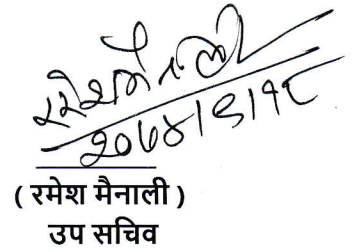 रमेश मैनाली
२०७४।९।१८
( रमेश मैनाली )
उप सचिव